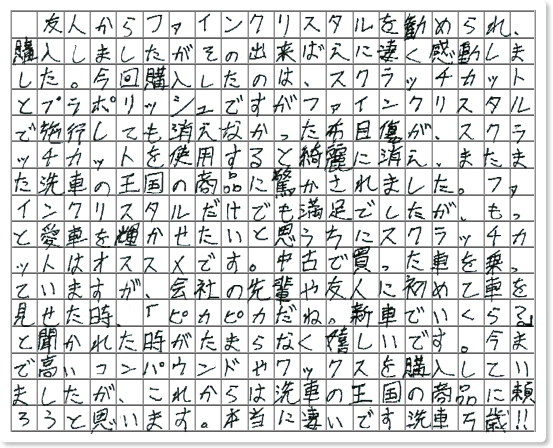 友人からファインクリスタルを勧められ、
購入しましたがその出来ばえに凄く感動しま
した。今回購入したのは、スクラッチカット
とプラポリッシュですがファインクリスタル
で施行しても消えなかった布目傷が、スクラ
ッチカットを使用すると綺麗に消え、またま
た洗車の王国の商品に驚かされました。ファ
インクリスタルだけでも満足でしたが、もっ
と愛車を輝かせたいと思うちにスクラッチカ
ットはオススメです。中古で買った車を乗っ
ていますが、会社の先輩や友人に初めて車を
見せた時、「ピカピカだね。新車でいくら?」
と聞かれた時がたまらなく嬉しいです。今ま
で高いコンパウンドやワックスを購入してい
ましたが、これからは洗車の王国の商品に頼
ろうと思います。本当に凄いです洗車万歳!!